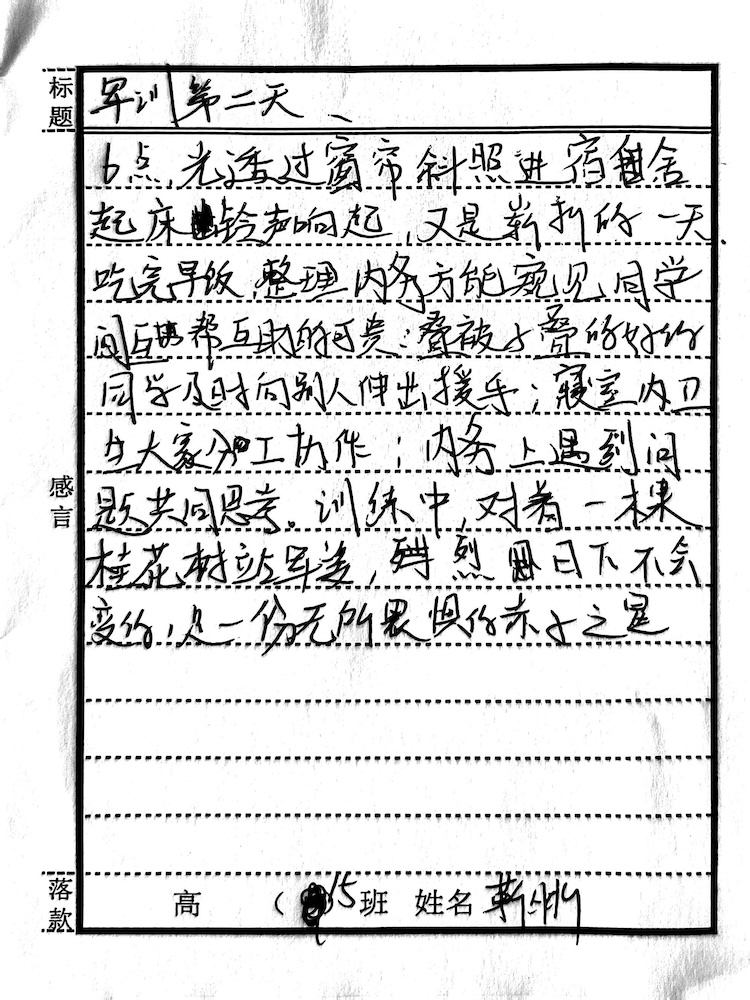 标题
军训第二天、
6点,光透过窗帘斜照进宿舍
起床铃声响起,又是崭新的一天
吃完早饭,整理内务方能窥见同学
间互帮互助的可贵:叠被子叠的好的
同学及时向别人伸出援手;寝室内卫
生大家分工协作;内务上遇到问
题共同思考。训练中,对着一棵
桂花树站军姿,烈日下不会
变的,是一份无所畏惧的赤子之
感言
落款
高 ( 15班 姓名 靳